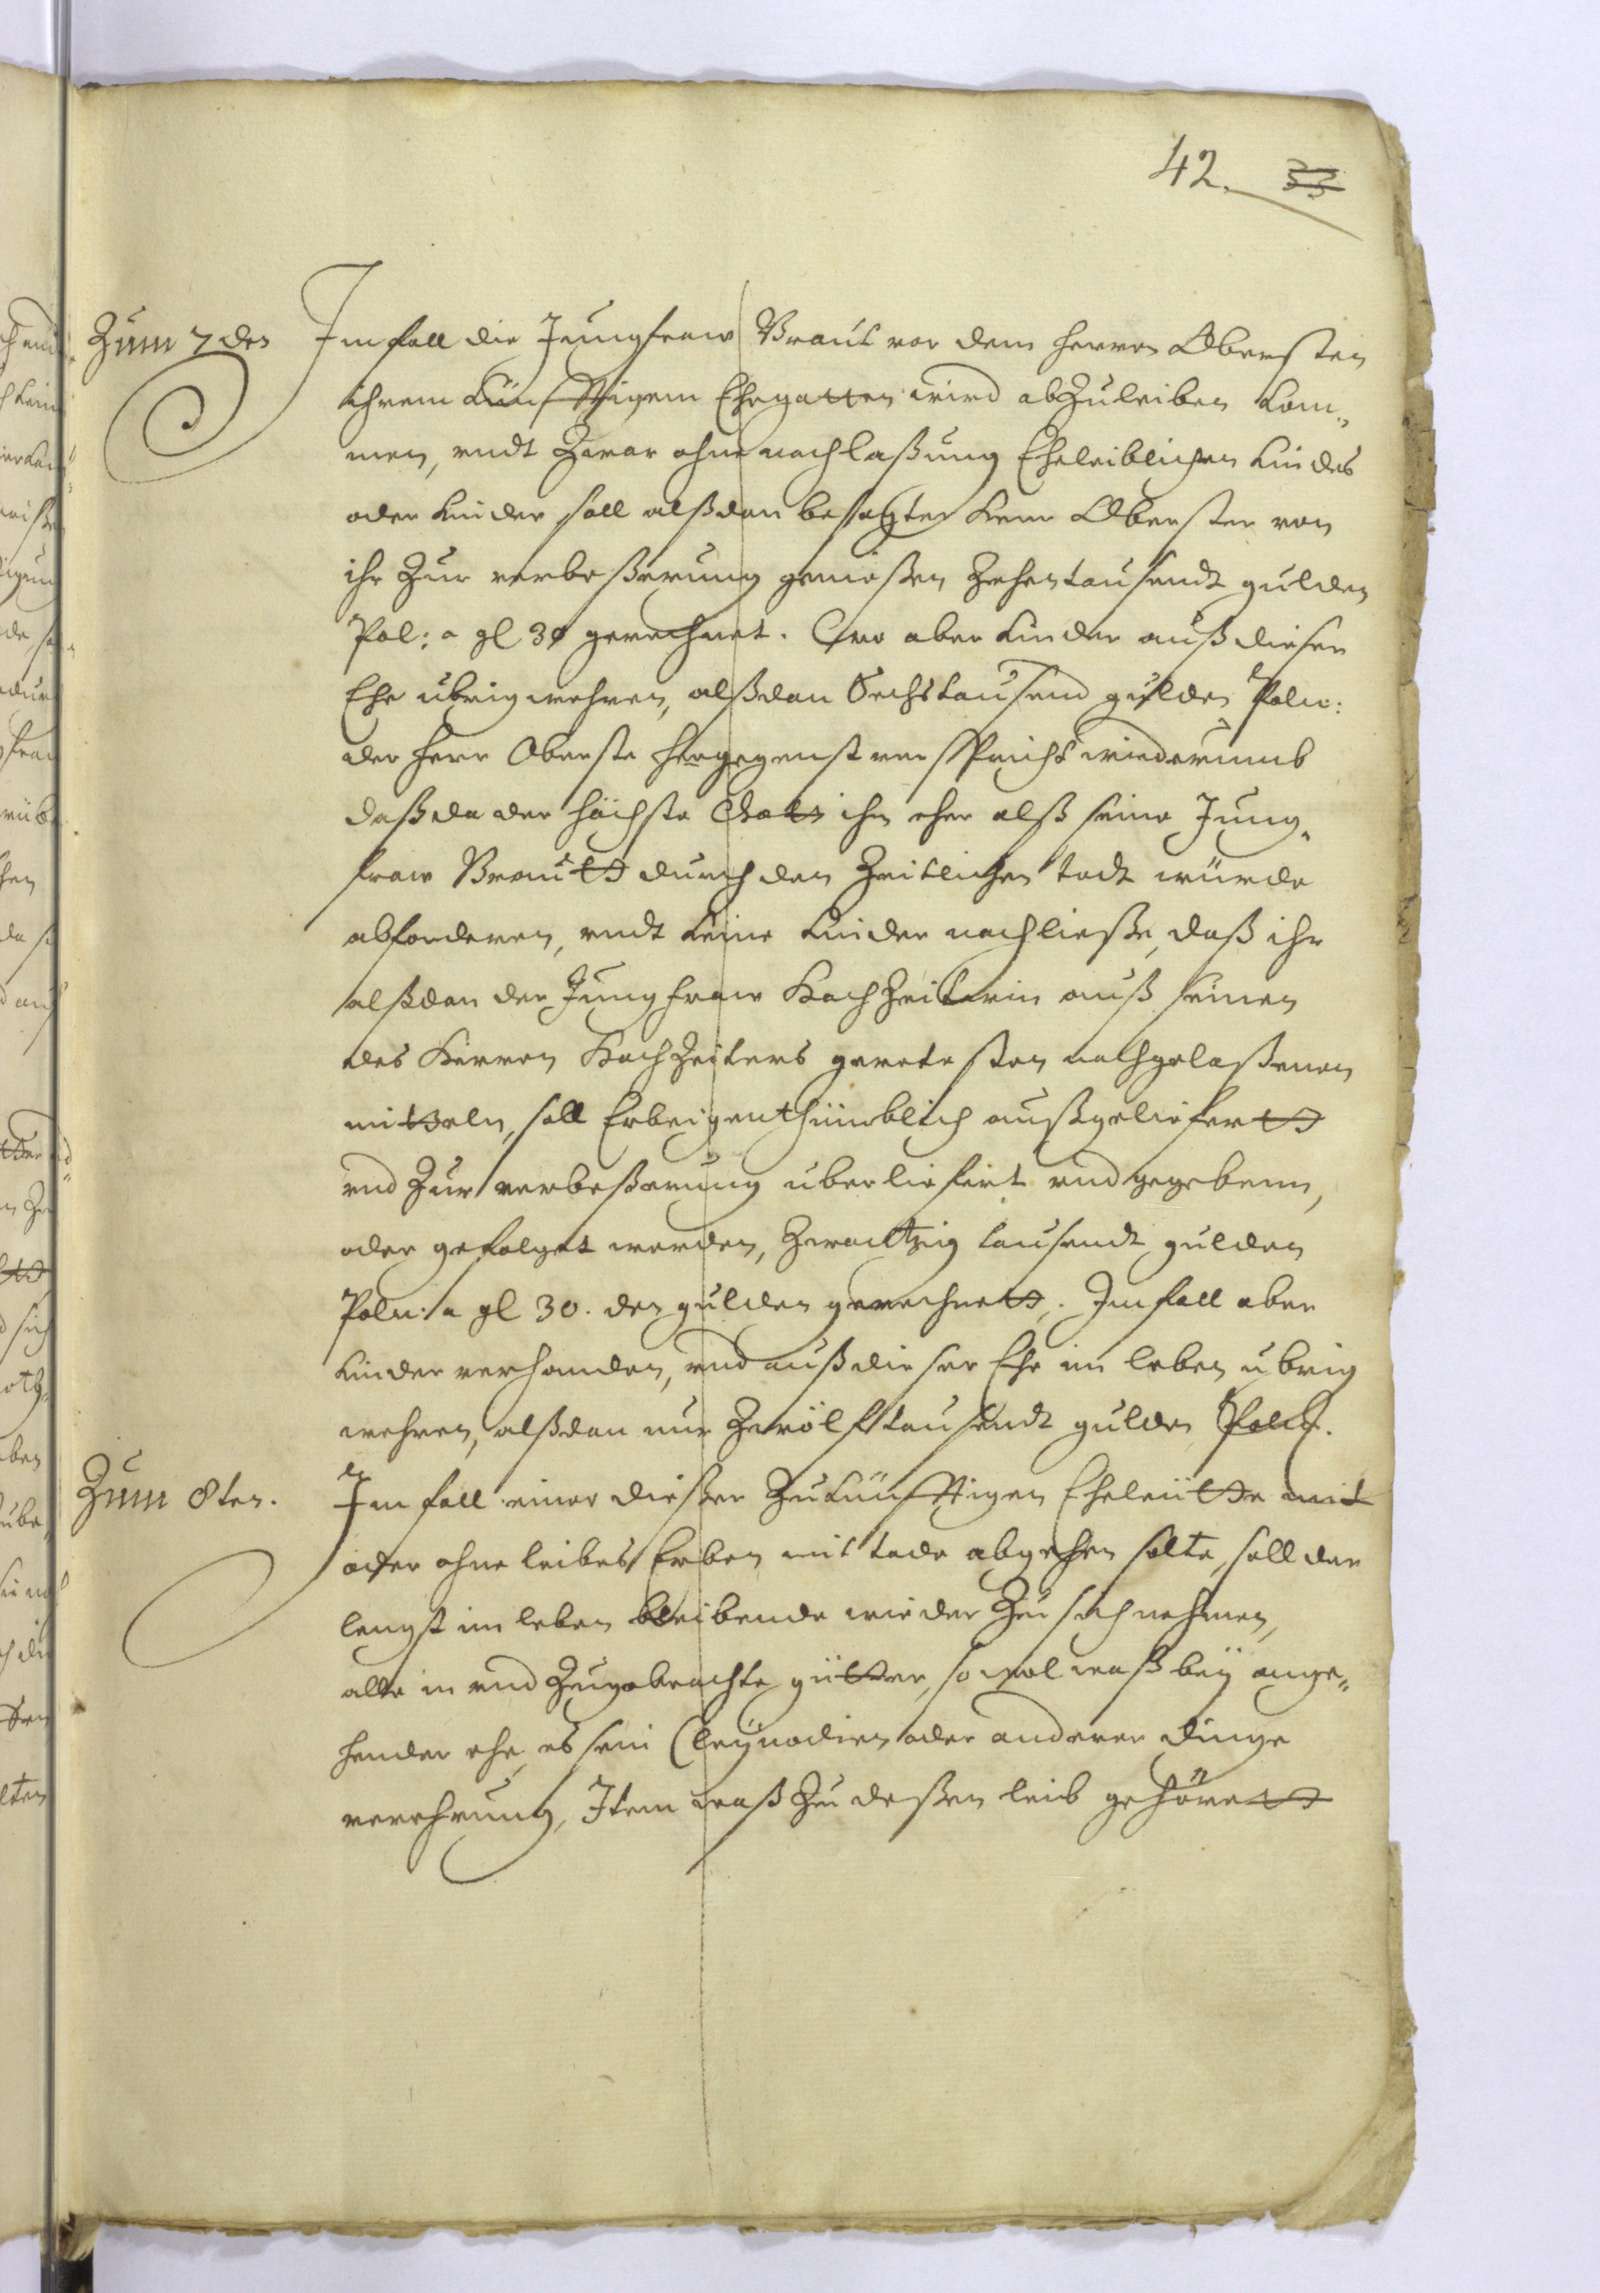 42. 33
Zum 7den Im fall die Jungfraw Braut vor dem Herren Obersten
ihrem künfftigem Ehegatten wird abzuleiben kom¬
men, undt zwar ohne nachlaßung Eheleiblichen Kindes
oder Kinder soll alßdan besagter Herr Oberster von
ihr zur verbeßerung genießen zehentausendt gulden
Pol: a gl 30 gerechnet. Wo aber Kinder auß dieser
Ehe übrig wehren, alßdan Sechstausend gulden Poln:
der Herr Oberste hergegenst verspricht wiederumb
daß da der höchste Gott ihn eher alß seine Jung¬
fraw Brautt durch den Zeitlichen todt würde
abforderen, undt keine Kinder nachließe, daß ihr
alßdan der Jungfraw Hochzeiterin auß seinen
des Herren Hochzeiters geretesten nachgelaßenen
mitteln, soll Erbeigenthümblich außgeliefertt
und zur verbeßerung uberliefert und gegebenn,
oder gefolget werden, zwantzig tausendt gulden
Poln: a gl 30. den gulden gerechnett. Im fall aber
Kinder verhanden, und auß dieser Ehe im leben übrig
wehren, alßdan nur zwölftausendt gulden Poln.
Zum 8ten. Im fall einer dießer zukünfftigen Eheleütte mit
oder ohne leibes Erben mit tode abgehen solte, soll der
lengst im leben bleibende wieder zu sich nehmen,
alle in und zugebrachte gütter, so wol waß beÿ ange¬
hender ehe, es sein Cleÿnodien oder anderer dinge
verehrung, Item waß zu deßen leib gehörett